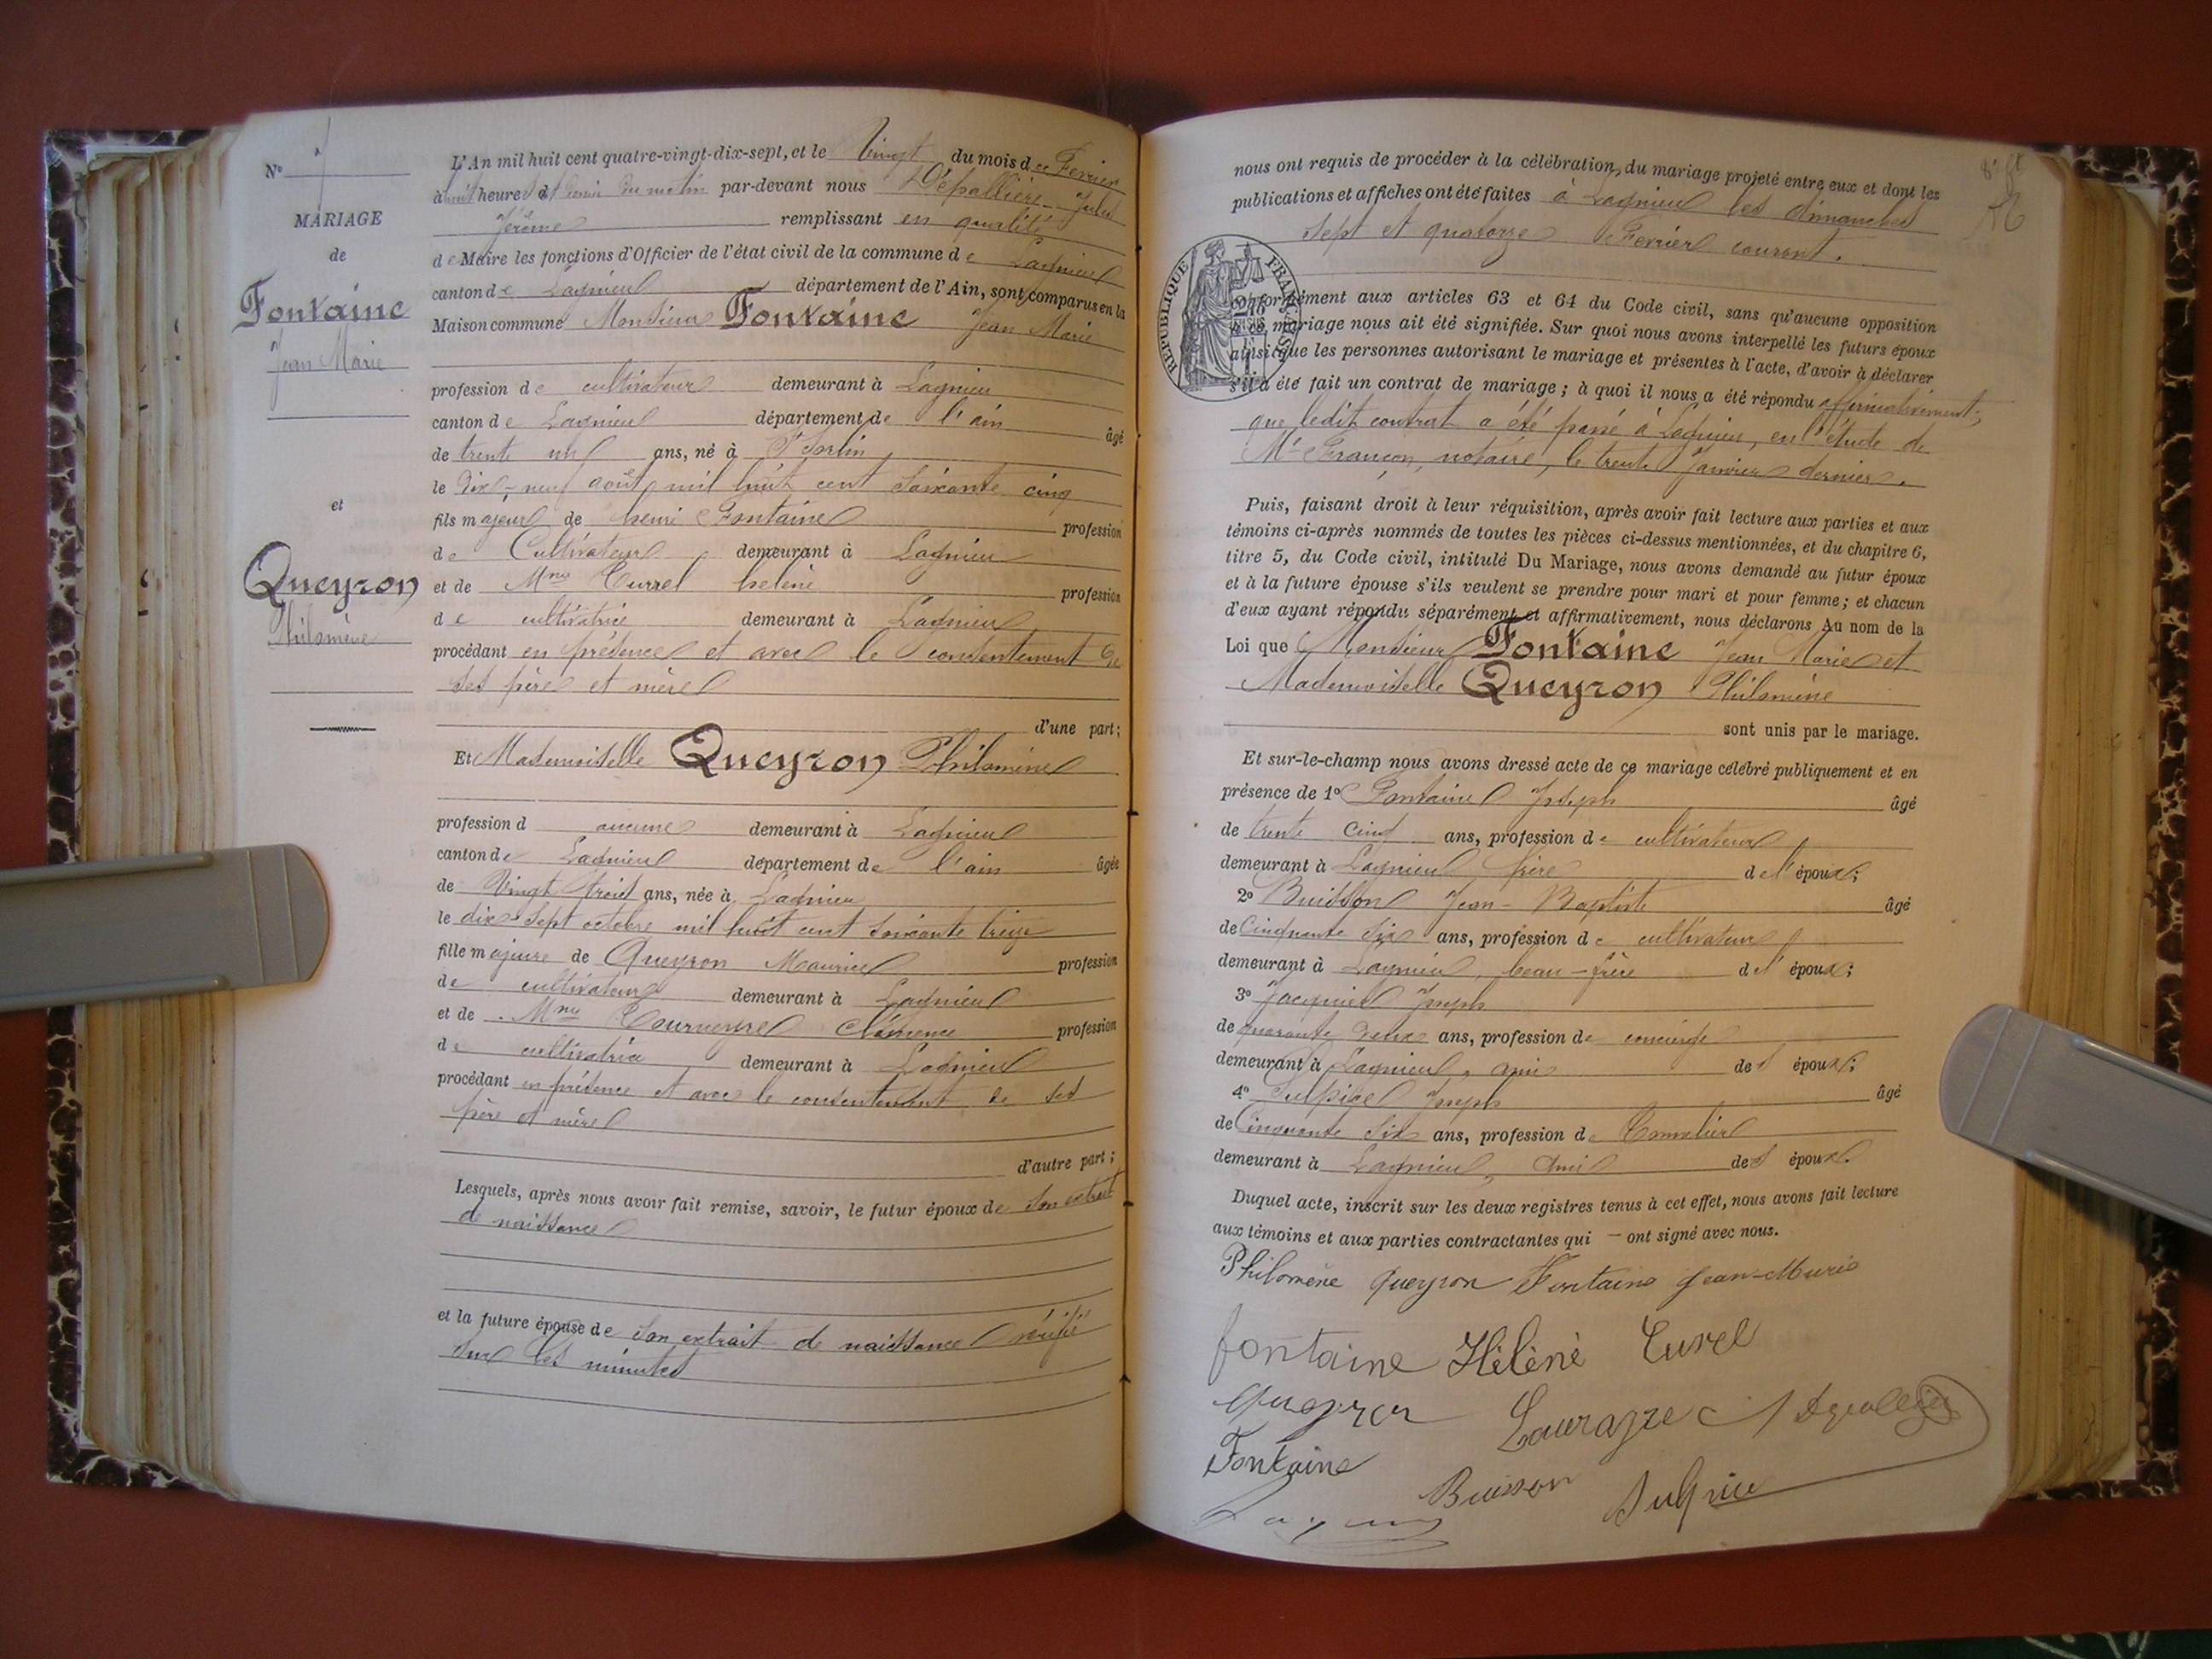 N° 7
MARIAGE
de
Fontaine
Jean Marie
et
Queyron
Philomène
L'An mil huit cent quatre-vingt-dix-sept, et le Vingt du mois de Fevrier
à huit heures et demie du matin par-devant nous Dépallière Jules
Jérôme remplissant en qualité
de Maire les fonctions d'Officier de l'état civil de la commune de Lagnieu
canton de Lagnieu département de l'Ain, sont comparus en la
Maison commune Monsieur Fontaine Jean Marie
profession de cultivateur demeurant à Lagnieu
canton de Lagnieu département de l'ain âgé
de trente un ans, né à St Sorlin
le dix-neuf août mil huit cent soixante cinq
fils majeur de henri Fontaine profession
de Cultivateur demeurant à Lagnieu
et de Mme Turrel heléne profession
de cultivatrice demeurant à Lagnieu
procédant en présence et avec le consentement de
ses père et mère
d'une part;
Et Mademoiselle Queyron Philomène
profession d aucune demeurant à Lagnieu
canton de Lagnieu département de l'ain âgée
de Vingt trois ans, née à Lagnieu
le dix sept octobre mil huit cent soixante treize
fille majeure de Queyron Maurice profession
de cultivateur demeurant à Lagnieu
et de Mme Clémence profession
de cultivatrice demeurant à Lagnieu
procédant en présence et avec le consentement de ses
père et mère
d'autre part;
Lesquels, après nous avoir fait remise, savoir, le futur époux de son extrait
de naissance
et la future épouse de son extrait de naissance vérifié
sur les minutes
nous ont requis de procéder à la célébration du mariage projeté entre eux et dont les
publications et affiches ont été faites à Lagnieu les dimanches
sept et quatorze Fevrier courant.
RÉPUBLIQUE FRANÇAISE
conformément aux articles 63 et 64 du Code civil, sans qu'aucune opposition
mariage nous ait été signifiée. Sur quoi nous avons interpellé les futurs époux
ainsi que les personnes autorisant le mariage et présentes à l'acte, d'avoir à déclarer
s'il a été fait un contrat de mariage; à quoi il nous a été répondu affirmativement;
que ledit contrat a été passé à Lagnieu, en l'étude de
Me Françon, notaire, le trente Janvier dernier.
Puis, faisant droit à leur réquisition, après avoir fait lecture aux parties et aux
témoins ci-après nommés de toutes les pièces ci-dessus mentionnées, et du chapitre 6,
titre 5, du Code civil, intitulé Du Mariage, nous avons demandé au futur époux
et à la future épouse s'ils veulent se prendre pour mari et pour femme; et chacun
d'eux ayant répondu séparément et affirmativement, nous déclarons Au nom de la
Loi que Monsieur Fontaine Jean Marie et
Mademoiselle Queyron Philomène
sont unis par le mariage.
Et sur-le-champ nous avons dressé acte de ce mariage célébré publiquement et en
présence de 1° Fontaine Joseph âgé
de trente cinq ans, profession de cultivateur
demeurant à Lagnieu frère de l'époux;
2° Buisson Jean-Baptiste âgé
de Cinquante six ans, profession de cultivateur
demeurant à Lagnieu, beau-frère de l'époux;
3° Joseph
de quarante deux ans, profession de concierge
demeurant à Lagnieu, ami des époux;
4° Sulpice Joseph âgé
de Cinquante six ans, profession de Tonnelier
demeurant à Lagnieu, ami des époux.
Duquel acte, inscrit sur les deux registres tenus à cet effet, nous avons fait lecture
aux témoins et aux parties contractantes qui — ont signé avec nous.
Philomène Queyron Fontaine Jean-Marie
fontaine Hélène Turel
Queyron
Fontaine
Buisson Sulpice